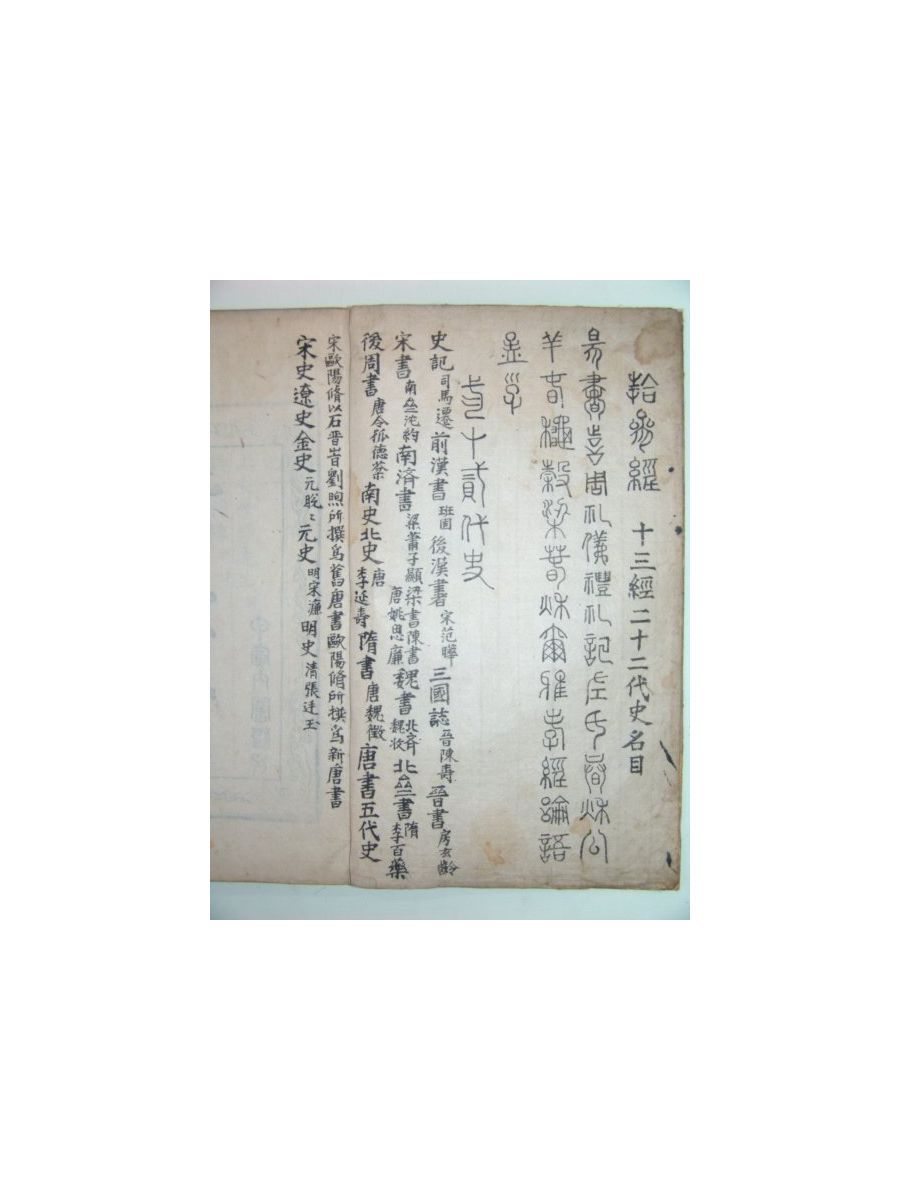 拾參經 十三經二十二代史名目
易書詩周礼儀禮礼記左氏春秋公
羊春穐穀梁春秋爾雅孝經論語
孟子
二十貳代史
史記 司馬遷 前漢書 班固 後漢書 宋范曄 三國誌 晉陳壽 晉書 房玄齡
宋書 南亝沈約 南済書 梁蕭子顯 梁書陳書 唐姚思廉 魏書 北斉魏收 北亝書 隋李百藥
後周書 唐令狐德棻 南史北史 唐李延壽 隋書 唐魏徵 唐書五代史
宋歐陽脩以石晉時劉煦所撰爲舊唐書歐陽脩所撰爲新唐書
宋史遼史金史 元脫〻 元史 明宋濂 明史 清張廷玉